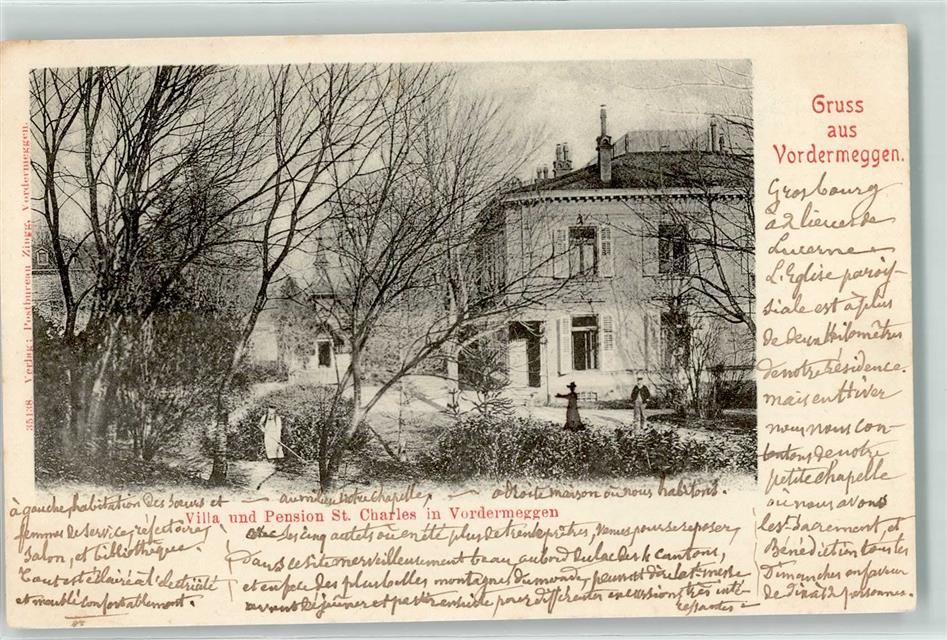 Gruss
aus
Vordermeggen.
35138 Verlag: Postbureau Zingg, Vordermeggen.
Villa und Pension St. Charles in Vordermeggen
Grosbourg
à 2 lieues de
Lucerne
L'Eglise parois-
siale est à plus
de deux kilomètres
de notre résidence.
mais en Hiver
nous nous con-
tentons de notre
petite chapelle
où nous avons
le St Sacrement, et
Bénédiction tous les
Dimanches en faveur
de dix à 12 personnes.
à gauche habitation des sœurs et
femmes de service, réfectoire,
Salon, et bibliothèque.
Tout est éclairé à l'électricité
et meublé confortablement.
au milieu notre chapelle,
à droite maison où nous habitons.
avec ses cinq autels où en été plus de trente prêtres, venus pour se reposer
dans ce site merveilleusement beau au bord du lac des 4 cantons,
et en face des plus belles montagnes du monde, peuvent dire la St messe
avant déjeuner et partir ensuite pour différentes excursions très inté-
ressantes